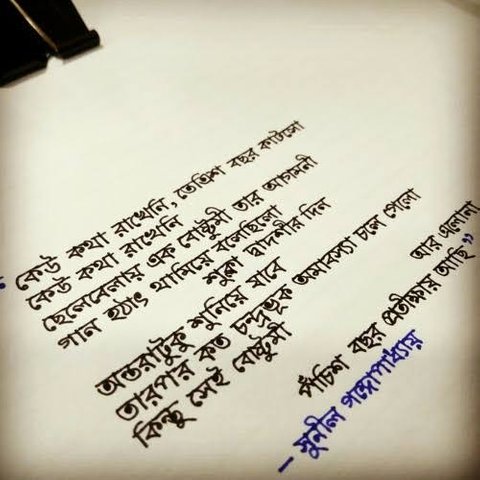 “কেউ কথা রাখেনি, তেত্রিশ বছর কাটলো
কেউ কথা রাখেনি
ছেলেবেলায় এক বোষ্টুমী তার আগমনী
গান হঠাৎ থামিয়ে বলেছিলো
শুক্লা দ্বাদশীর দিন
অন্তরাটুকু শুনিয়ে যাবে
তারপর কত চন্দ্রভূক অমাবস্যা চলে গেলো
কিন্তু সেই বোষ্টুমী
আর এলোনা
পঁচিশ বছর প্রতীক্ষায় আছি”
- সুনীল গঙ্গোপাধ্যায়